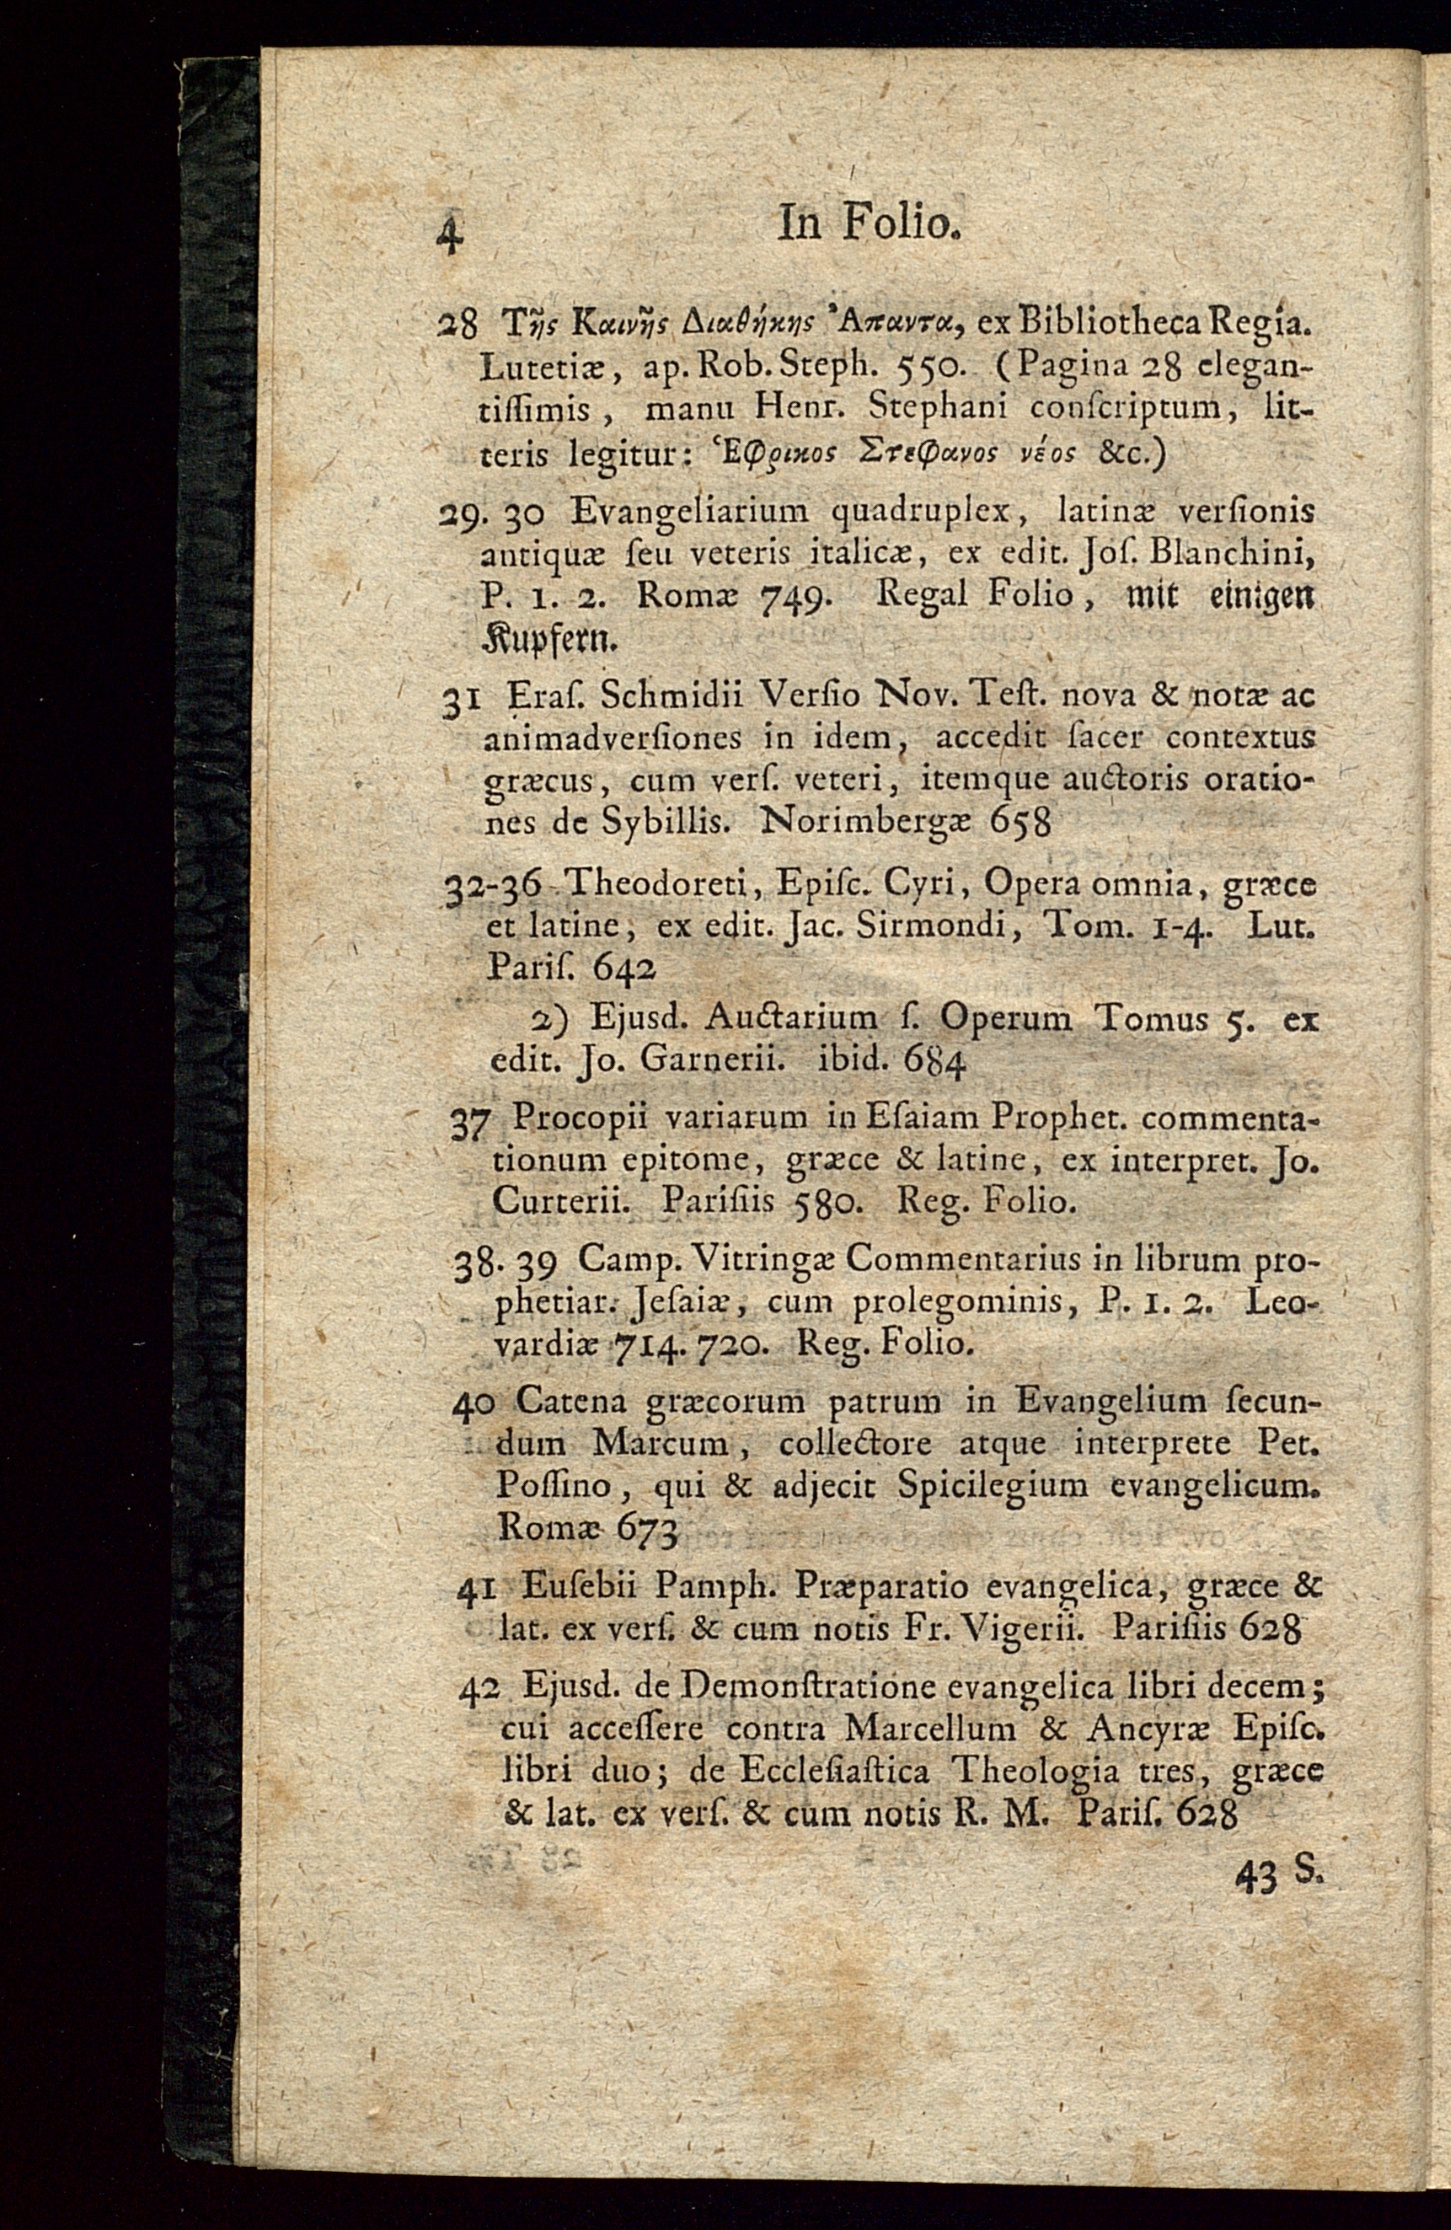 4 In Folio.
28 Τῆς Καινῆς Διαθήκης Ἀπαντα, ex Bibliotheca Regia.
Lutetiæ, ap. Rob. Steph. 550. (Pagina 28 elegan-
tiſſimis, manu Henr. Stephani conſcriptum, lit-
teris legitur: Ἑφρικος Στεφανος νέος &c.)
29. 30 Evangeliarium quadruplex, latinæ verſionis
antiquæ ſeu veteris italicæ, ex edit. Joſ. Blanchini,
P. 1. 2. Romæ 749. Regal Folio, mit einigen
Kupfern.
31 Eraſ. Schmidii Verſio Nov. Teſt. nova & notæ ac
animadverſiones in idem, accedit ſacer contextus
græcus, cum verſ. veteri, itemque auctoris oratio-
nes de Sybillis. Norimbergæ 658
32-36 Theodoreti, Epiſc. Cyri, Opera omnia, græce
et latine, ex edit. Jac. Sirmondi, Tom. 1-4. Lut.
Pariſ. 642
2) Ejusd. Auctarium ſ. Operum Tomus 5. ex
edit. Jo. Garnerii. ibid. 684
37 Procopii variarum in Eſaiam Prophet. commenta-
tionum epitome, græce & latine, ex interpret. Jo.
Curterii. Pariſiis 580. Reg. Folio.
38. 39 Camp. Vitringæ Commentarius in librum pro-
phetiar. Jeſaiæ, cum prolegominis, P. 1. 2. Leo-
vardiæ 714. 720. Reg. Folio.
40 Catena græcorum patrum in Evangelium ſecun-
dum Marcum, collectore atque interprete Pet.
Poſſino, qui & adjecit Spicilegium evangelicum.
Romæ 673
41 Euſebii Pamph. Præparatio evangelica, græce &
lat. ex verſ. & cum notis Fr. Vigerii. Pariſiis 628
42 Ejusd. de Demonſtratione evangelica libri decem;
cui acceſſere contra Marcellum & Ancyræ Epiſc.
libri duo; de Eccleſiaſtica Theologia tres, græce
& lat. ex verſ. & cum notis R. M. Pariſ. 628
43 S.